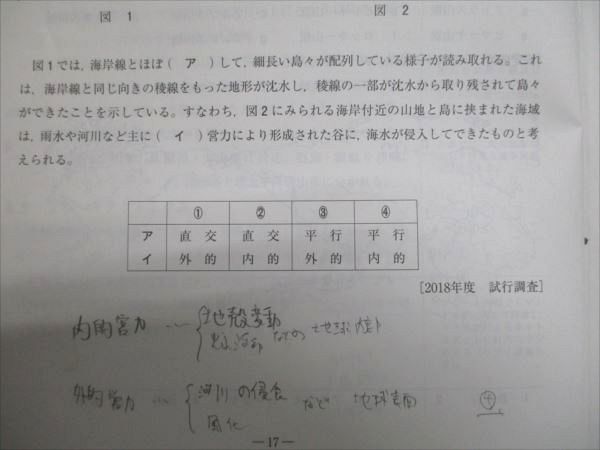 図 1
図 2
図1では，海岸線とほぼ（ ア ）して，細長い島々が配列している様子が読み取れる。これ
は，海岸線と同じ向きの稜線をもった地形が沈水し，稜線の一部が沈水から取り残されて島々
ができたことを示している。すなわち，図2にみられる海岸付近の山地と島に挟まれた海域
は，雨水や河川など主に（ イ ）営力により形成された谷に，海水が侵入してできたものと考
えられる。
① ② ③ ④
ア 直交 直交 平行 平行
イ 外的 内的 外的 内的
[2018年度 試行調査]
内的営力 … 地殻変動
などの 地球内部
外的営力 … 河川の侵食
風化
など 地球表面
④
—17—